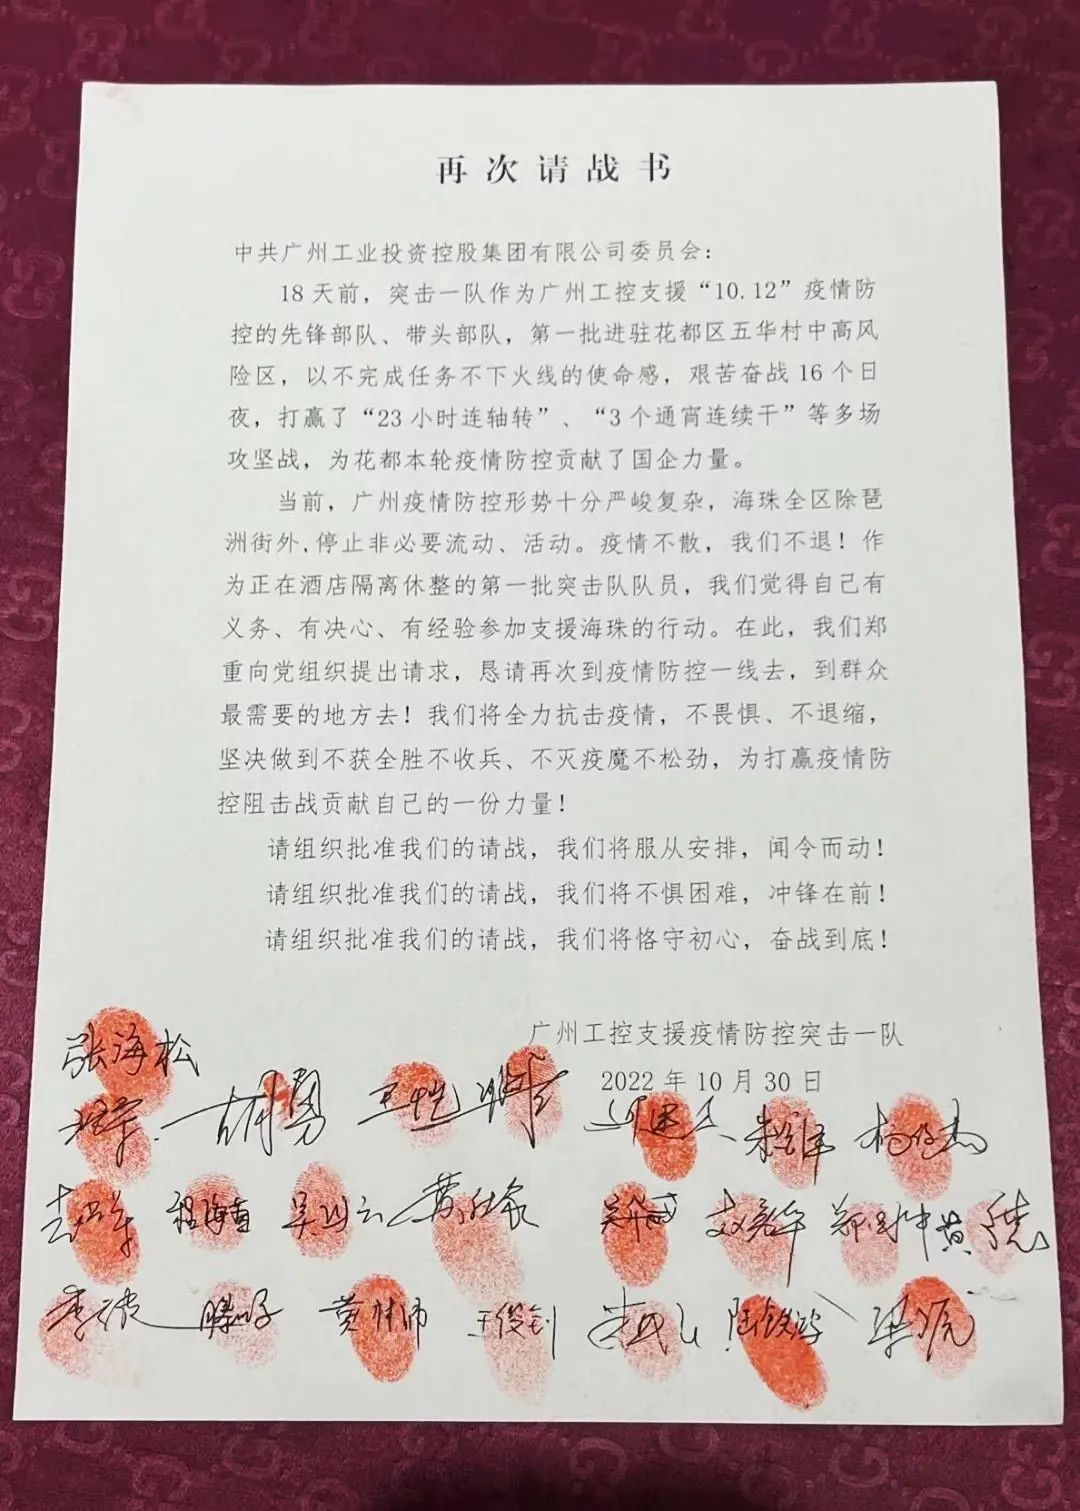 再次请战书
中共广州工业投资控股集团有限公司委员会：
18天前，突击一队作为广州工控支援“10.12”疫情防
控的先锋部队、带头部队，第一批进驻花都区五华村中高风
险区，以不完成任务不下火线的使命感，艰苦奋战16个日
夜，打赢了“23小时连轴转”、“3个通宵连续干”等多场
攻坚战，为花都本轮疫情防控贡献了国企力量。
当前，广州疫情防控形势十分严峻复杂，海珠全区除琶
洲街外，停止非必要流动、活动。疫情不散，我们不退！作
为正在酒店隔离休整的第一批突击队队员，我们觉得自己有
义务、有决心、有经验参加支援海珠的行动。在此，我们郑
重向党组织提出请求，恳请再次到疫情防控一线去，到群众
最需要的地方去！我们将全力抗击疫情，不畏惧、不退缩，
坚决做到不获全胜不收兵、不灭疫魔不松劲，为打赢疫情防
控阻击战贡献自己的一份力量！
请组织批准我们的请战，我们将服从安排，闻令而动！
请组织批准我们的请战，我们将不惧困难，冲锋在前！
请组织批准我们的请战，我们将恪守初心，奋战到底！
广州工控支援疫情防控突击一队
2022年10月30日
张海松
胡勇 王恺
程海鱼
黄德
黄林师 王俊钊